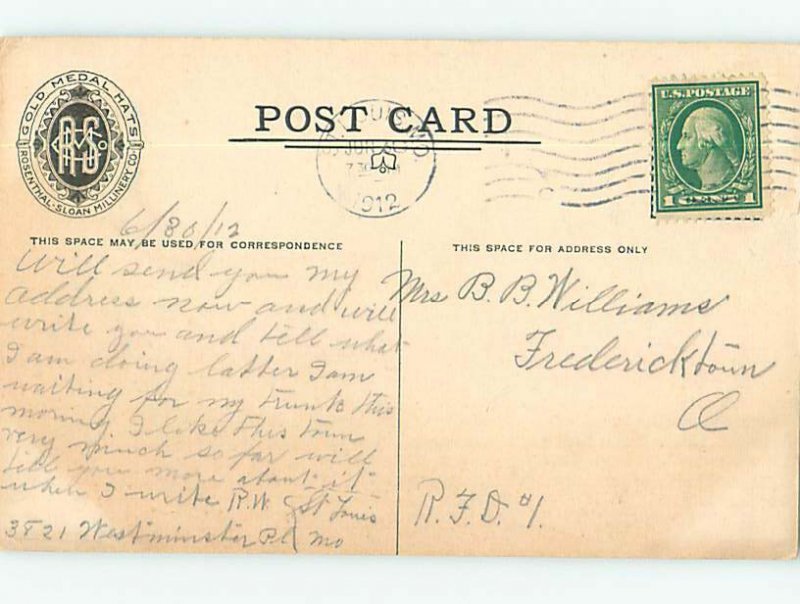 GOLD MEDAL HATS
RMS Co
ROSENTHAL-SLOAN MILLINERY CO.
POST CARD
ST. LOUIS, MO
JUN 30
730 PM
1912
U.S. POSTAGE
1 CENT 1
6/30/12
THIS SPACE MAY BE USED FOR CORRESPONDENCE
THIS SPACE FOR ADDRESS ONLY
Will send you my
address now and will
write you and tell what
I am doing latter I am
waiting for my trunk this
morning I like this town
very much so far will
tell you more about it
when I write R.W. St Louis
3821 Westminster Pl Mo
Mrs B. B. Williams
Fredericktown
O
R.F.D. #1.